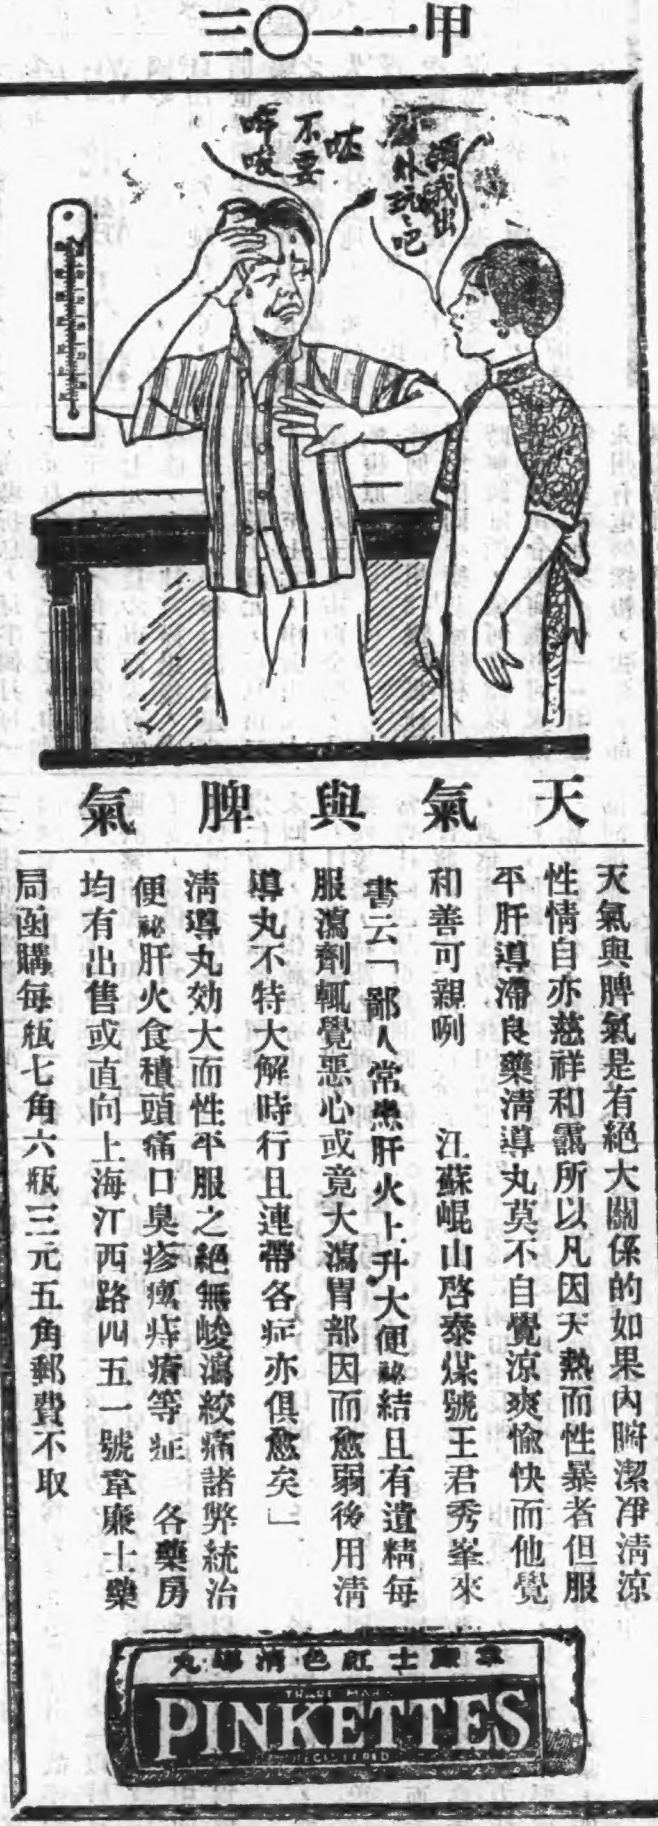 甲一一〇三
領我出
外玩玩吧
不要
天氣與脾氣
天氣與脾氣是有絕大關係的如果內腑潔凈清涼
性情自亦慈祥和靄所以凡因天熱而性暴者但服
平肝導滯良藥清導丸莫不自覺涼爽愉快而他覺
和善可親咧　江蘇崐山啓泰煤號王君秀峯來
書云「鄙人常患肝火上升大便祕結且有遺精每
服瀉劑輒覺惡心或竟大瀉胃部因而愈弱後用清
導丸不特大解時行且連帶各症亦俱愈矣」
清導丸効大而性平服之絕無峻瀉絞痛諸弊統治
便祕肝火食積頭痛口臭疹瘰痔瘡等症　各藥房
均有出售或直向上海江西路四五一號韋廉士藥
局函購每瓶七角六瓶三元五角郵費不取
韋廉士紅色清導丸
TRADE MARK
PINKETTES
REGISTERED